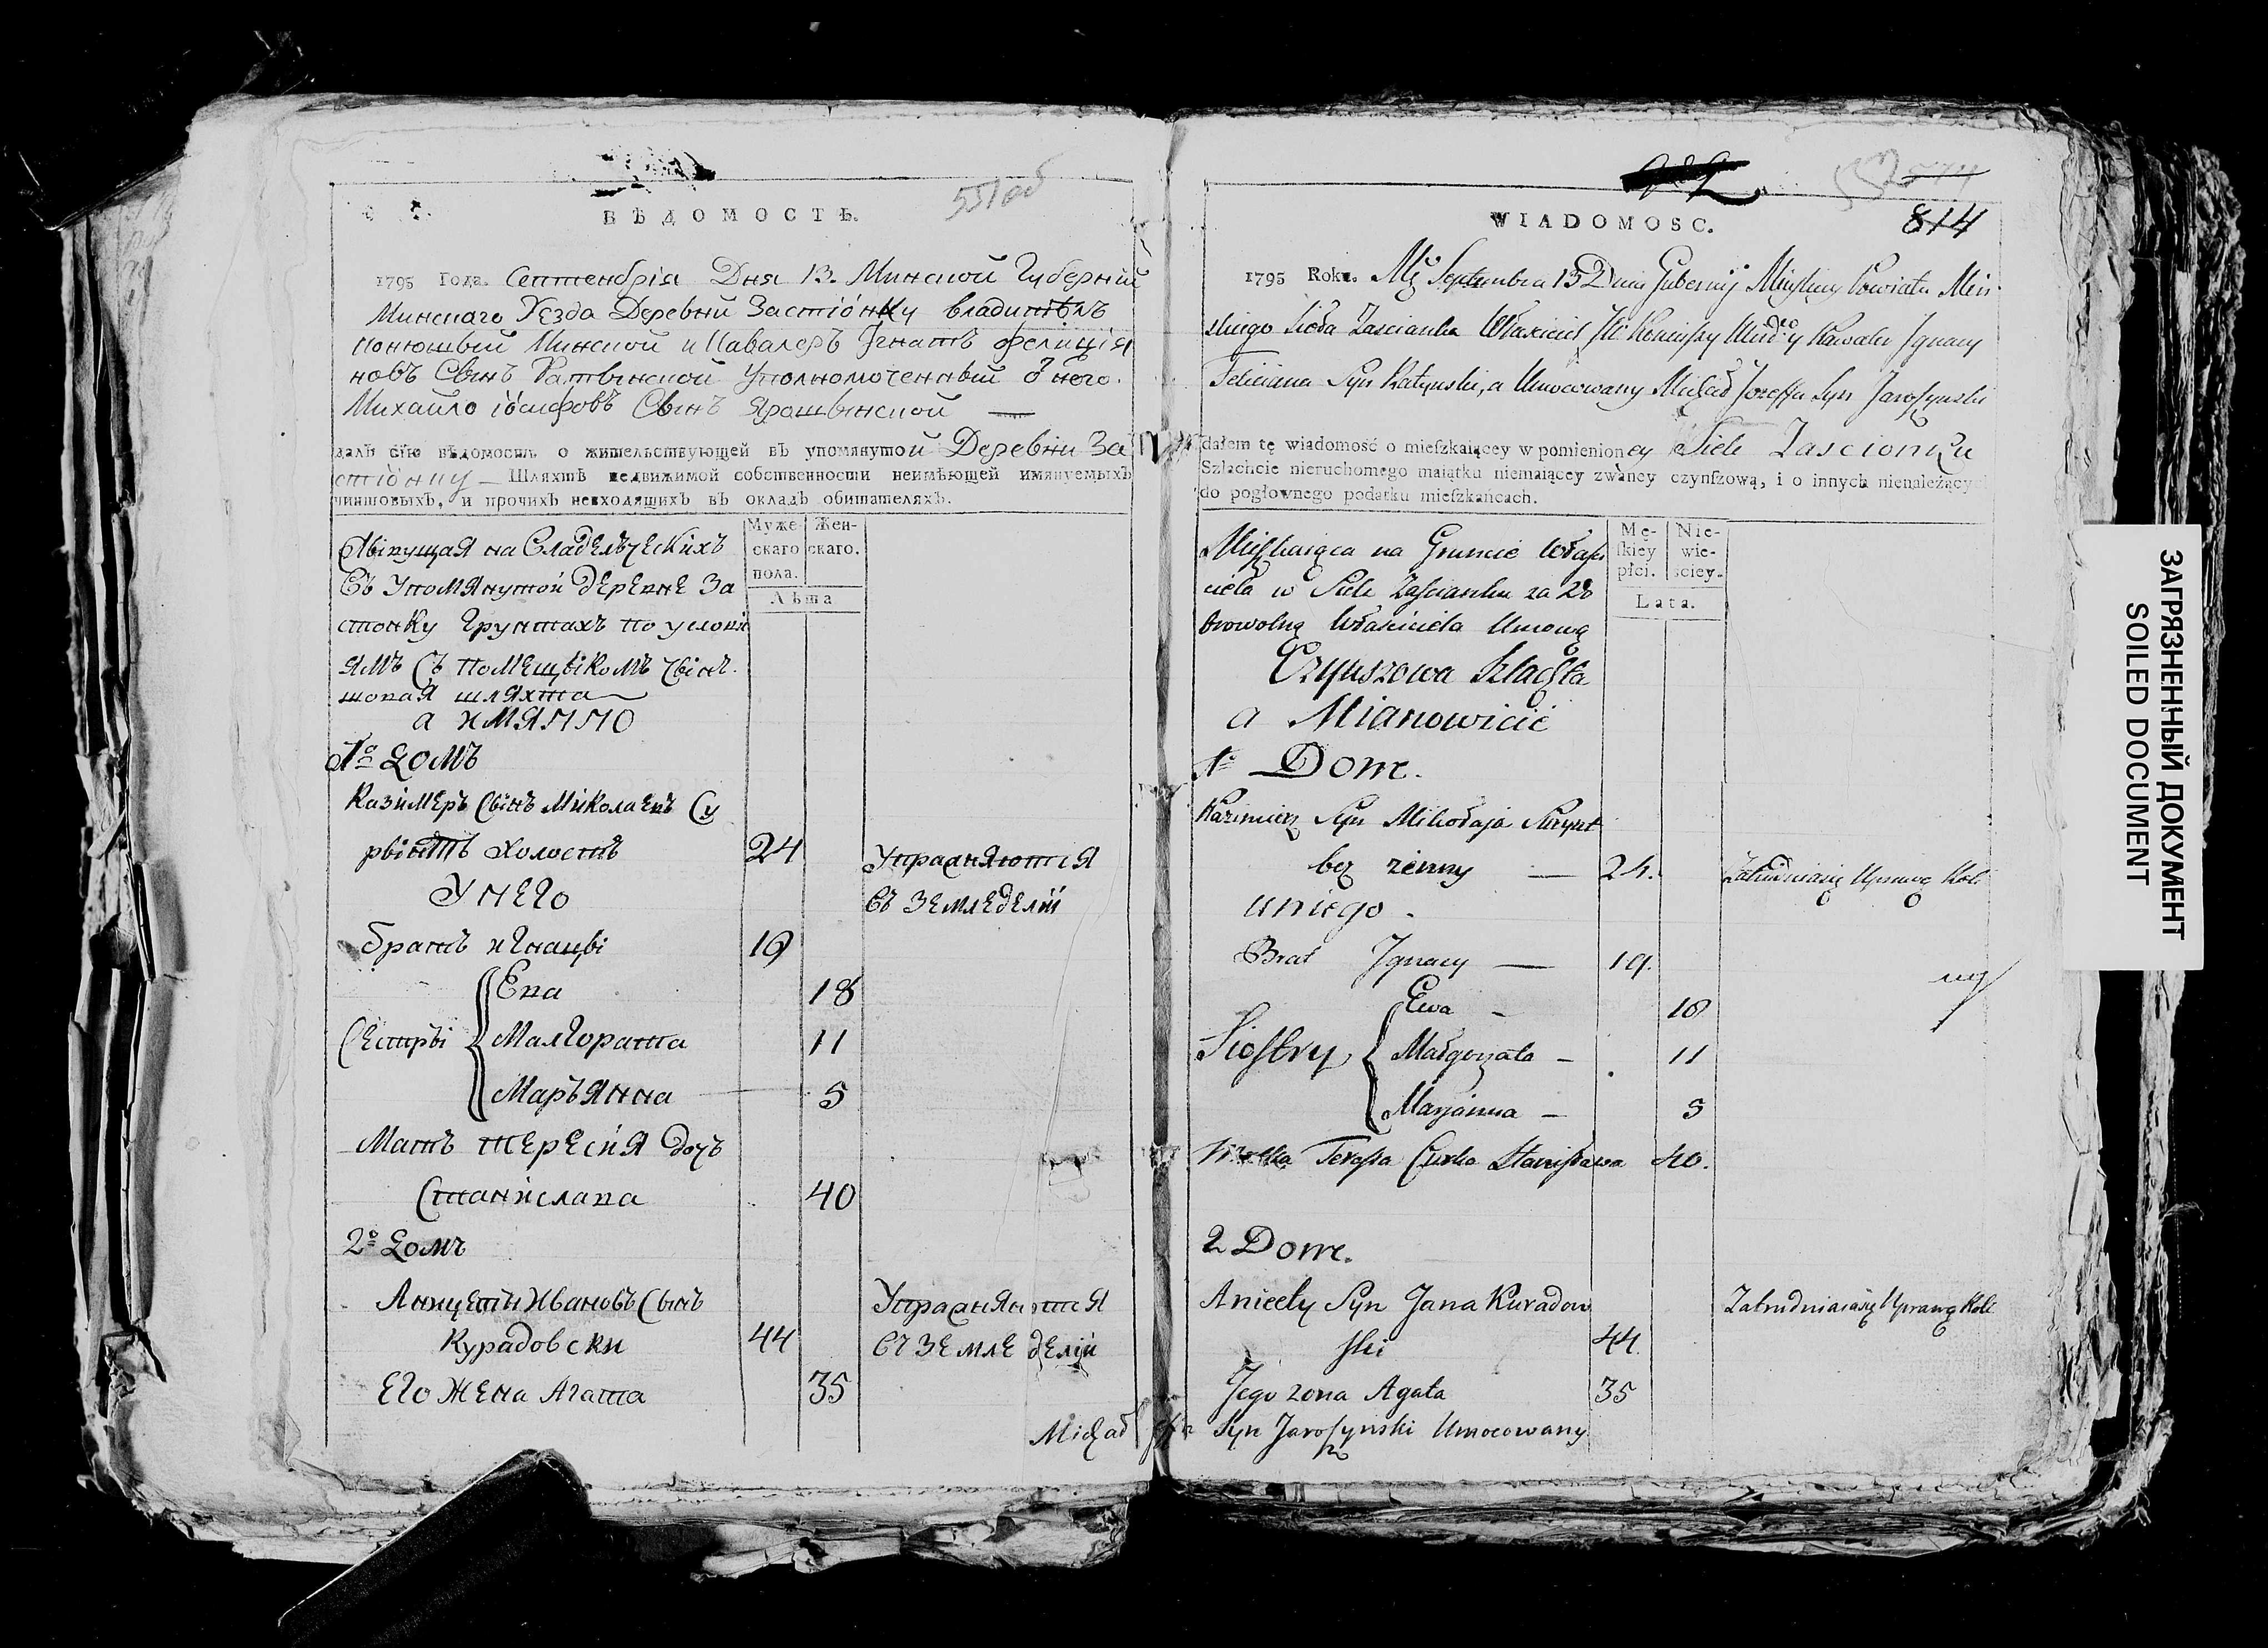 551 об
ВѢДОМОСТЬ.
1795 Года. Септенбрія Дня 13. Минской Губерній
Минскаго Уезда Деревни Застіонку владител҃ь
конюшый Минской и Кавалеръ Ігнатъ Фелиція
новъ Сынъ Ратынской Уполномоченный Ѿ него
Михайло іосифовъ Сынъ Ярошынской —
далъ сію вѣдомость о жительствующей въ упомянутой Деревни За
стіонку — Шляхтѣ недвижимой собственности неимѣющей имянуемыхъ
чиншовыхъ, и прочихъ невходящихъ въ окладъ обитателяхъ.
Муже- Жен-
скаго скаго.
пола.
Лѣта
Живущая на Владельческихъ
Въ Упомянутой деревне За
стонку Грунтахъ по услові
ямъ Съ помещыкомъ Чын
шовая шляхта
а имянно
1º Домъ
Казимеръ Сынъ Миколаевъ Су
рынтъ Холостъ 24 Упрадняются
У него Въ земледелій
братъ игнацы 19
Сестры { Ева 18
Малгората 11
Марьянна 5
Мать тересия дочь
Станислава 40
2º Домъ
Аницети Ивановъ Сынъ Упрадняются
Курадовски 44 Въ земле делій
Его жена Агата 35
Michał
814
WIADOMOSC.
1795 Roku. Septembra 13 Dnia Gubernij Minskiey Powiatu Min
skiego Sioła Zascianku Własciciel JW Koniuszy Kawaler Jgnacy
Feliciana Syn Ratynski, a Umocowany Michał Jozeffa Syn Jaroszynski
dałem tę wiadomość o mieſzkaiącey w pomienioney Siele Zascionku
Szlachcie nieruchomego maiątku niemaiącey zwáney czynſzową, i o innych nienależący
do pogłownego podatku mieſzkańcach.
Mę- Nie-
ſkiey wie-
płci. sciey.
Lata.
Mieszkaiąca na Gruncie Własci
ciela w Siele Zascianku za Do
browolną Własciciela Umową
Czynszowa Szlachta
a Mianowicie
1º Dom.
Kazimierz Syn Mikołaja Surynt
bez zenny — 24. Zatrudniasię Uprawą Roli
uniego.
Brat Jgnacy — 19.
Siostry { Ewa — 18
Małgorzata — 11
Marjanna — 5
Matka Teressa Curka Stanisława 40.
2 Dom.
Anicety Syn Jana Kuradow Zatrudniaiasię Uprawą Roli
ski 44
Jego zona Agata 35
Syn Jaroszynski Umocowany
ЗАГРЯЗНЕННЫЙ ДОКУМЕНТ
SOILED DOCUMENT